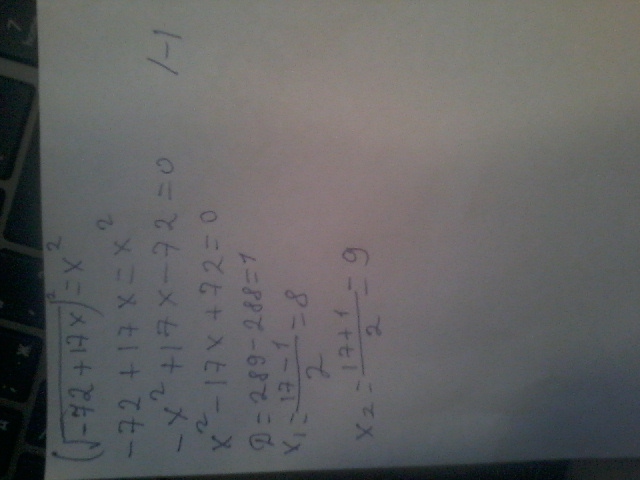 (√-72+17x)² = x²
-72+17x = x²
-x²+17x-72=0 /-1
x²-17x+72=0
D=289-288=1
x₁=17-1/2=8
x₂=17+1/2=9